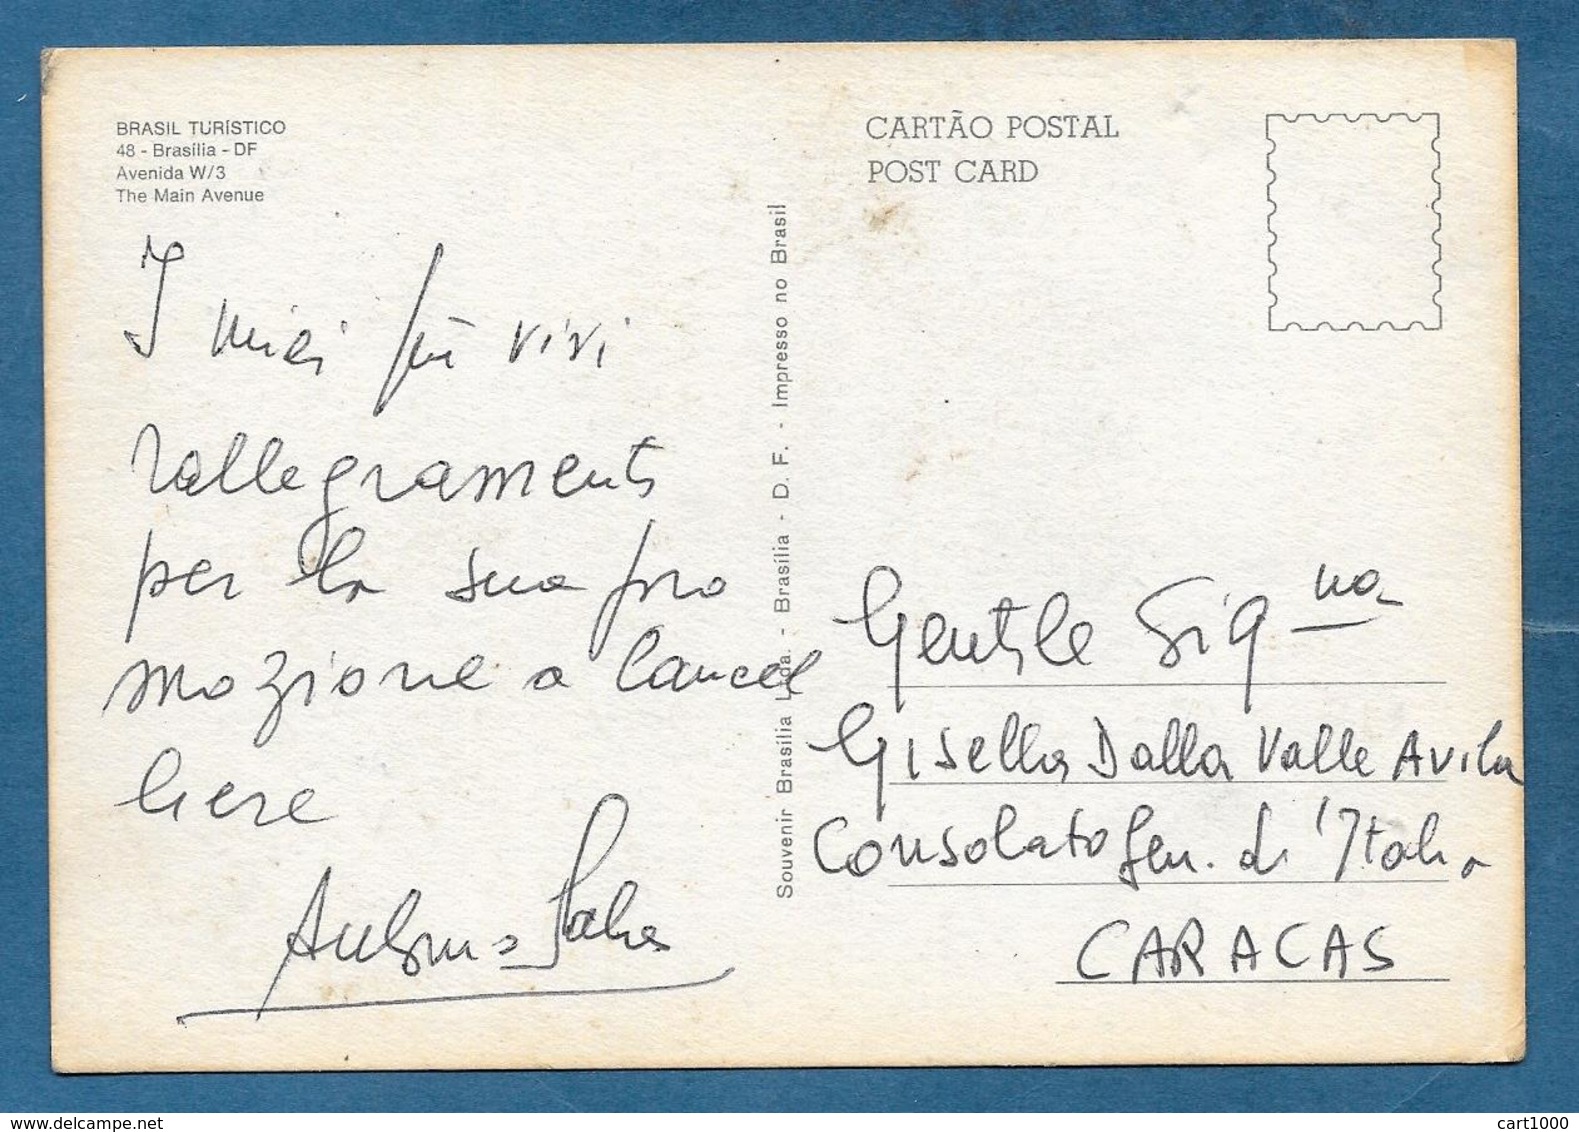 BRASIL TURÍSTICO
48 - Brasília - DF
Avenida W/3
The Main Avenue
I miei più vivi
rallegramenti
per la sua pro
mozione a cancel
liere
CARTÃO POSTAL
POST CARD
Souvenir Brasília Ltda. - Brasília - D. F. - Impresso no Brasil
Gentile Sig.na
Gisella Dalla Valle Avila
Consolato Gen. d'Italia
CARACAS
www.delcampe.net
cart1000